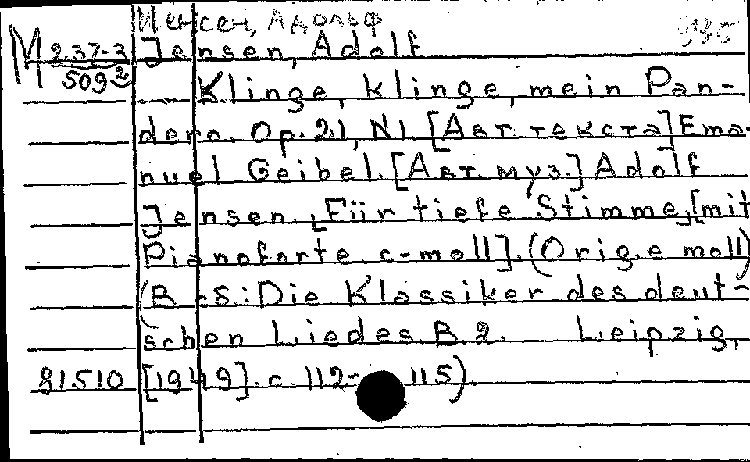 Иенсен, Адольф
М 2.37-2 Jensen, Adolf
509² Klinge, klinge, mein Pan-
dero. Op. 21, N1. [Авт. текста] Ema-
nuel Geibel. [Авт. муз.] Adolf
Jensen. Für tiefe Stimme, [mit
Pianoforte c-moll]. (Orig. e moll)
(В сб.: Die Klassiker des deut-
schen Liedes. B. 2. Leipzig,
81.510 [1949]. с. 112- 115).